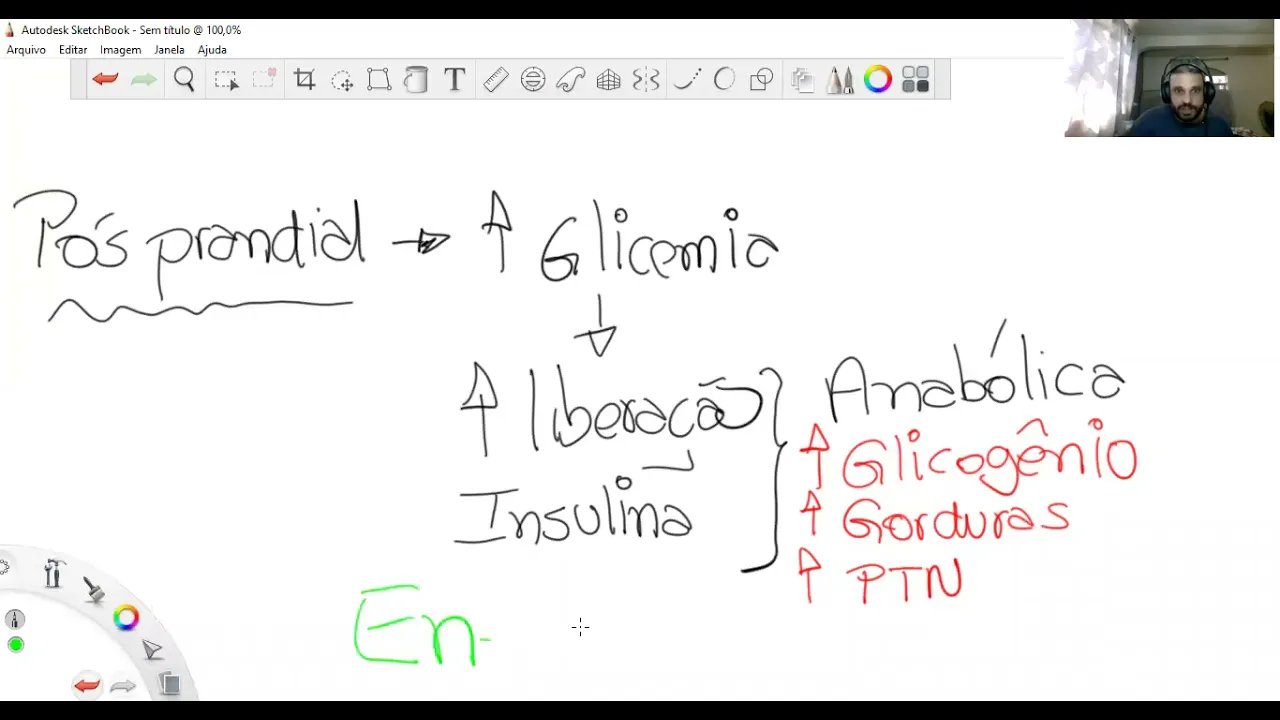 Autodesk SketchBook - Sem título @ 100,0%
Arquivo Editar Imagem Janela Ajuda
T
Pós prandial → ↑ Glicemia
↓
↑ liberação } Anabólica
Insulina
↑ Glicogênio
↑ Gorduras
↑ PTN
En-